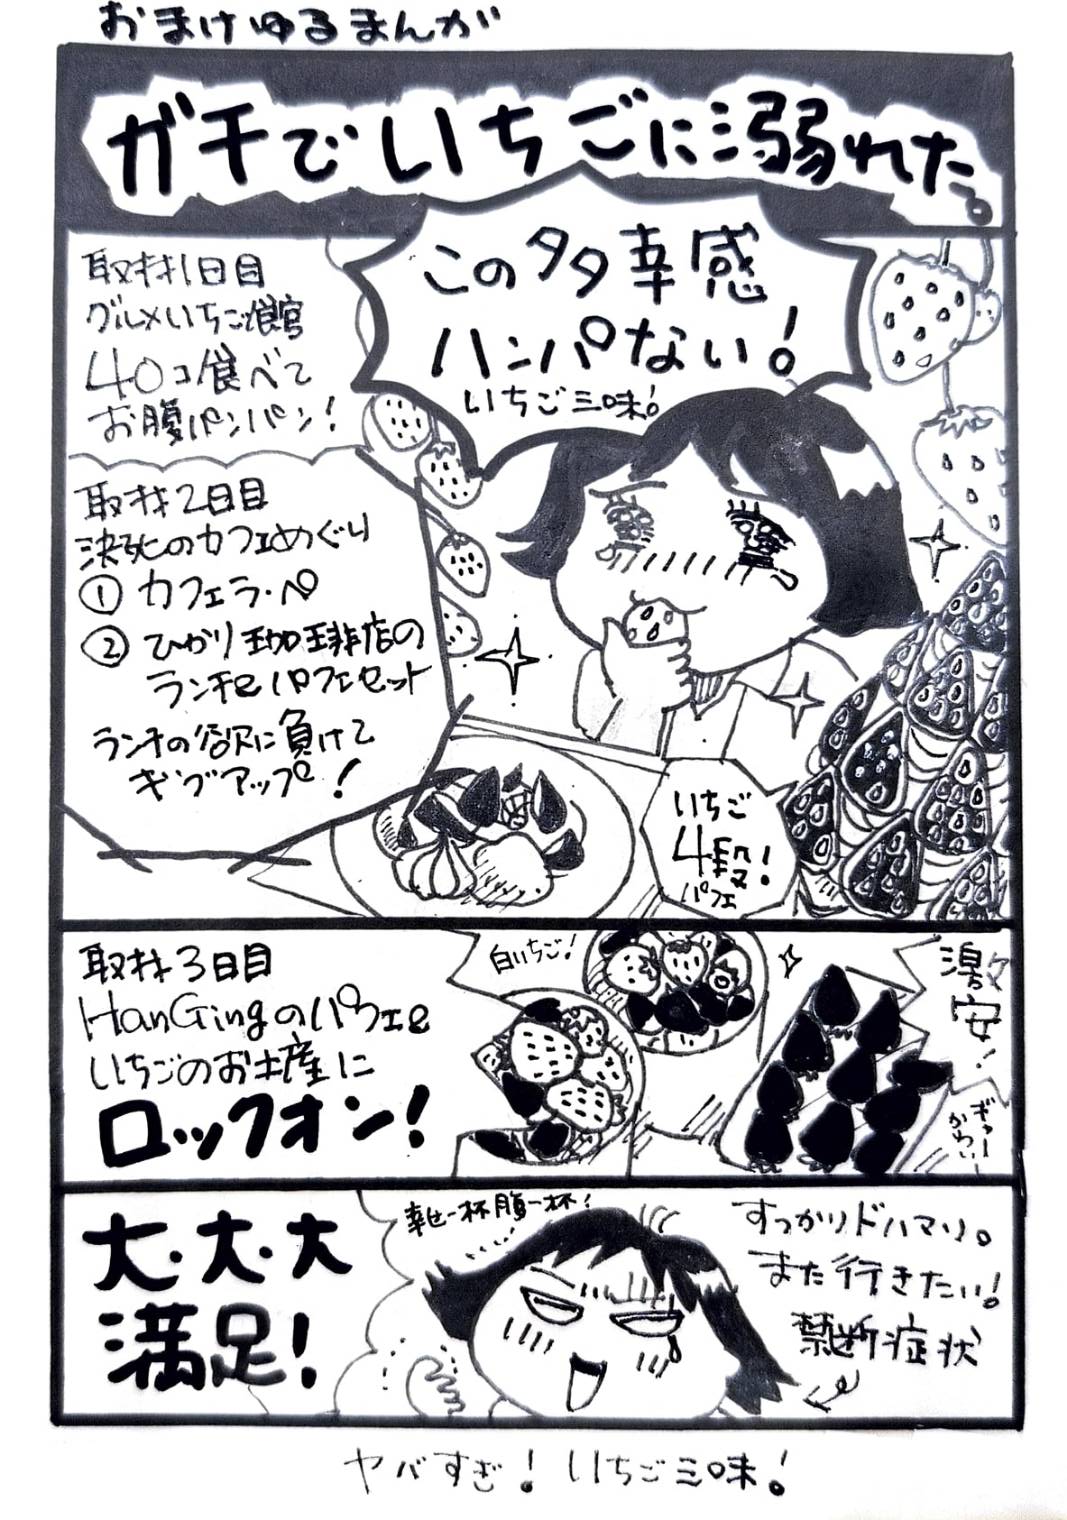 おまけゆるまんが
ガチでいちごに溺れた。
この多幸感
ハンパない!
いちご三昧!
取材1日目
グルメいちご館
40コ食べて
お腹パンパン!
取材2日目
決死のカフェめぐり
① カフェラ・ペ
② ひかり珈琲店の
ランチとパフェセット
ランチの欲に負けて
ギブアップ!
いちご
4段!
パフェ
取材3日目
HanGingのパフェと
いちごのお土産に
ロックオン!
白いちご!
激安!
ギャー
かわいい
大・大・大
満足!
幸せ一杯腹一杯!
すっかりドハマり。
また行きたい!
禁断症状
ヤバすぎ!いちご三昧!